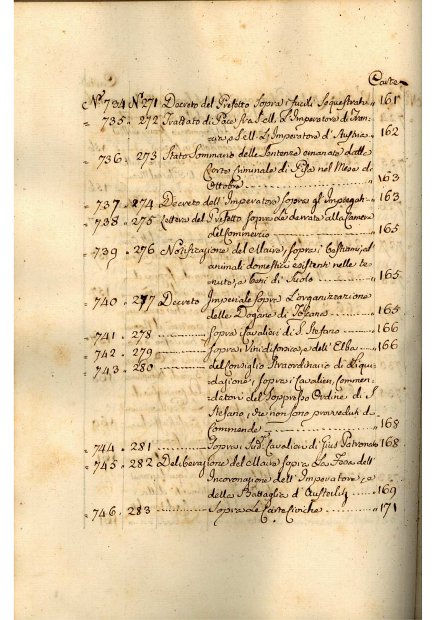 Carte
N.° 734 N.° 271 Decreto del Prefetto sopra i fucili Sequestrati " 161
" 735 " 272 Trattato di Pace fra S. M. L'Imperatore di Fran=
cia, e S. M. L'Imperatore d'Austria " 162
" 736 " 273 Stato Sommario delle Sentenze emanate dalla
Corte Criminale di Pisa nel Mese di
Ottobre " 163
" 737 " 274 Decreto dell'Imperatore sopra gl'Impiegati " 163
" 738 " 275 Lettera del Prefetto sopra le derrate alla Camera
del Commercio " 165
" 739 " 276 Notificazione del Maire, sopra i bestiami, al
animali domestici esistenti nelle te=
nute, e beni di Suolo " 165
" 740 " 277 Decreto Imperiale sopra l'organizzazione
delle Dogane di Toscana " 165
" 741 " 278 sopra i Cavalieri di S. Stefano " 166
" 742 " 279 sopra i Vini di Corsica, e dell'Elba " 166
" 743 " 280 del Consiglio Straordinario di Liqui=
dazione, sopra i Cavalieri, Commen=
datori del Soppresso Ordine di S.
Stefano, che non sono provveduti di
Commende " 168
" 744 " 281 Sopra i Sud.i Cavalieri di Gius Patronato 168
" 745 " 282 Deliberazione del Maire sopra La Festa dell'
Incoronazione dell'Imperatore, e
della Battaglia d'Austerliz " 169
" 746 " 283 Sopra le Carte Civiche " 171